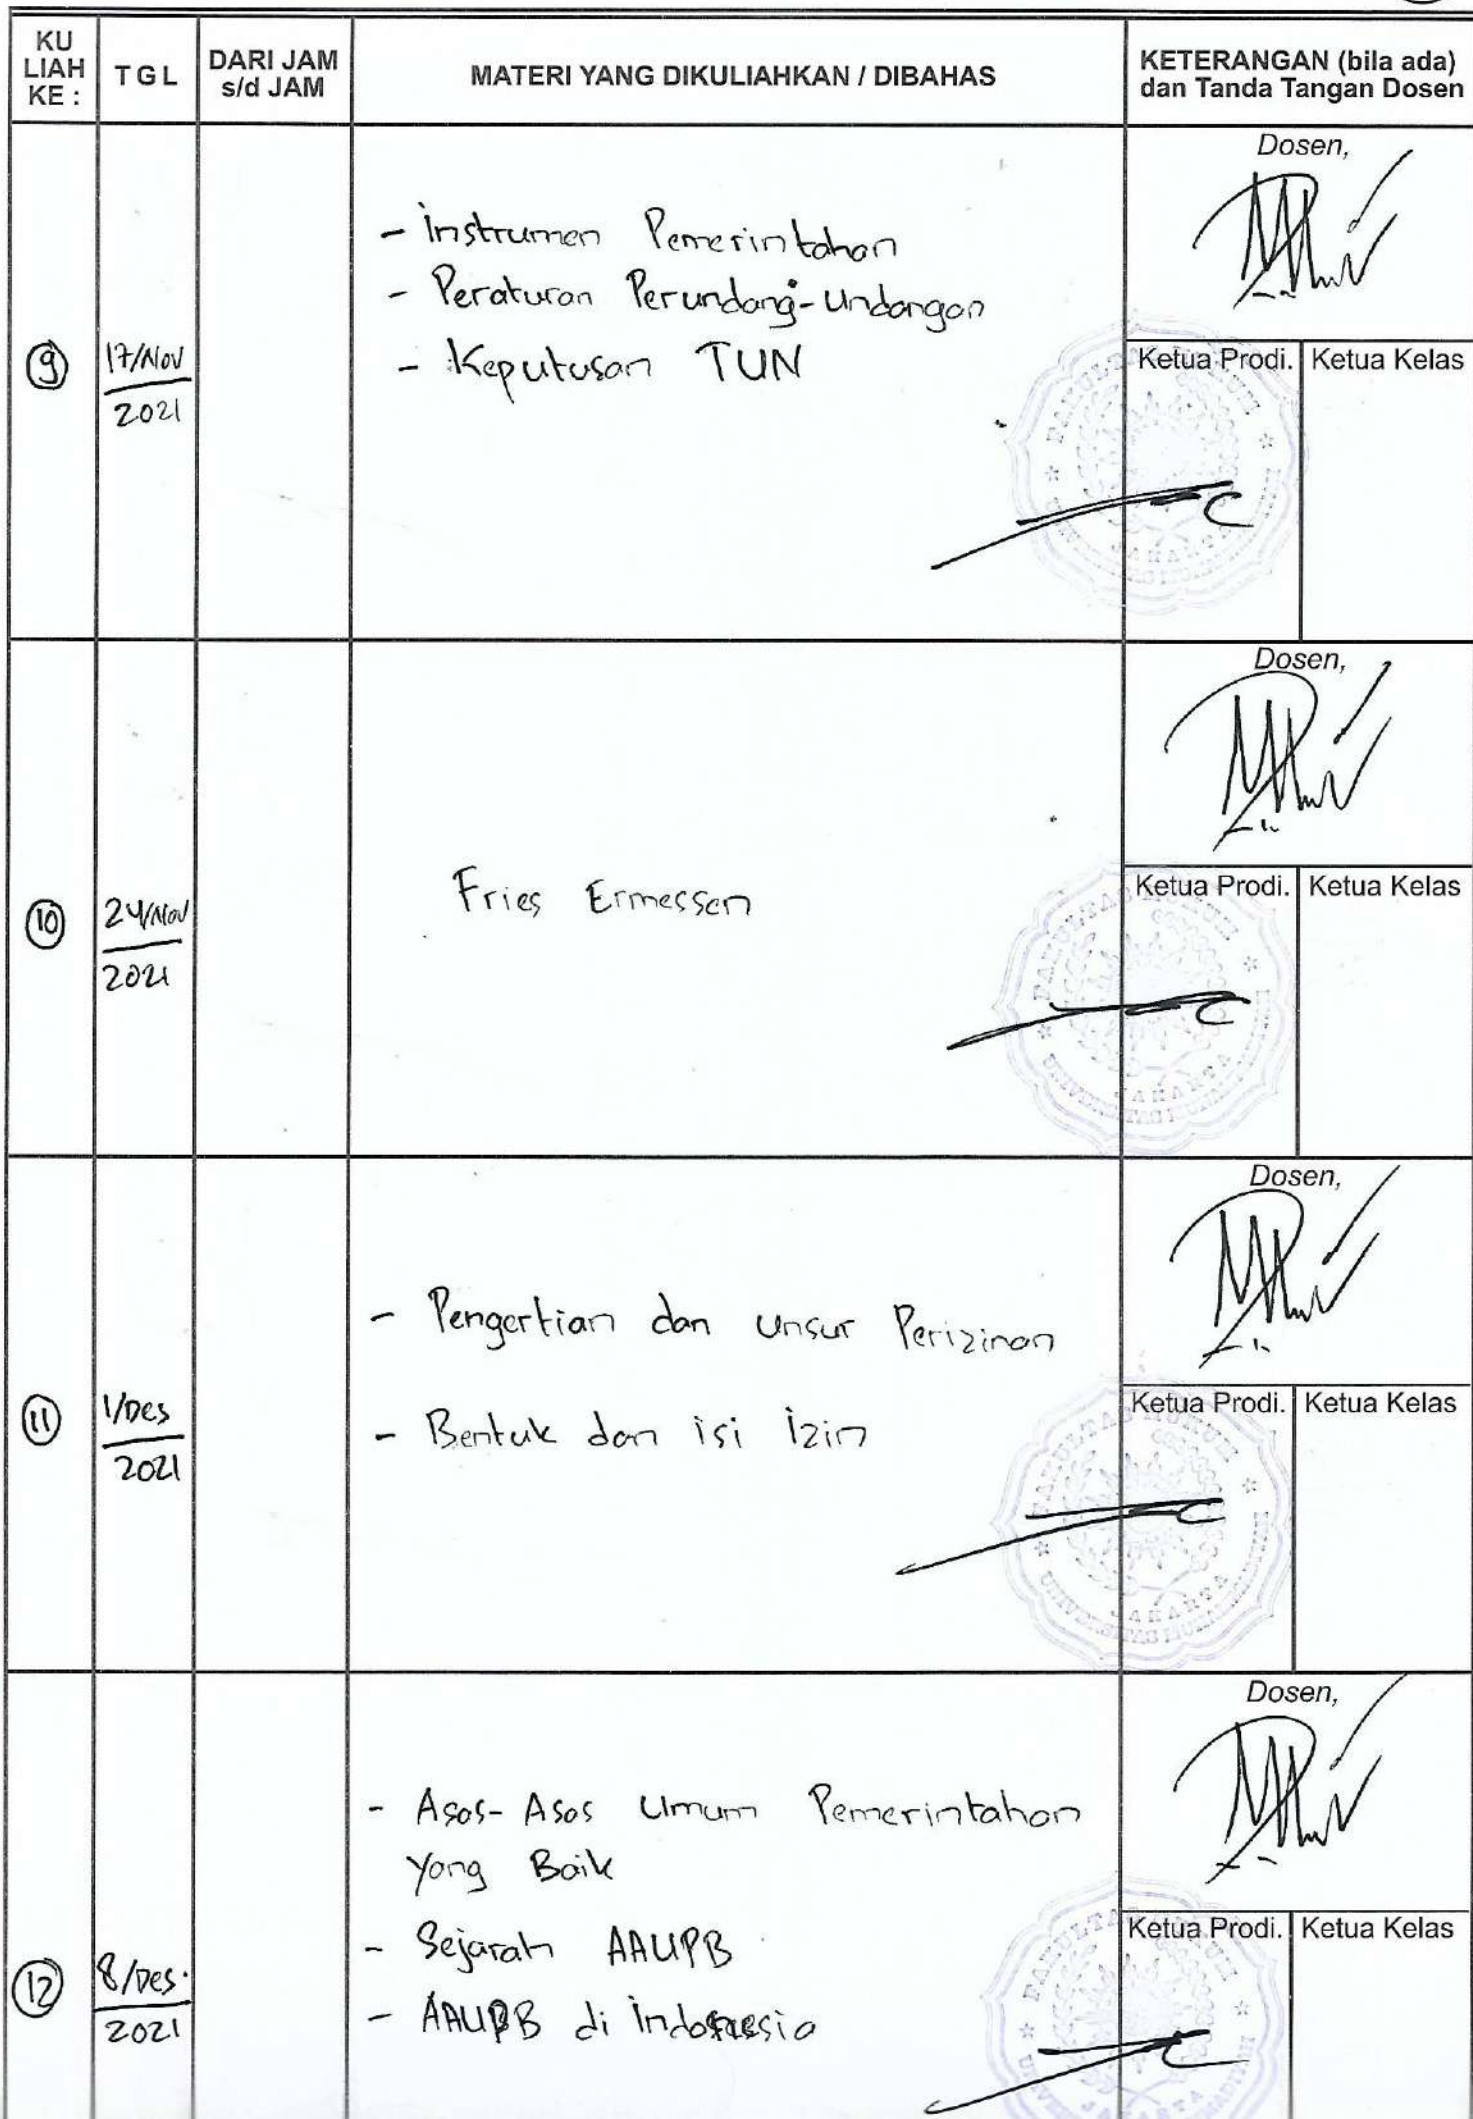 KU LIAH KE :
TGL
DARI JAM s/d JAM
MATERI YANG DIKULIAHKAN / DIBAHAS
KETERANGAN (bila ada) dan Tanda Tangan Dosen
9
17/Nov
2021
- Instrumen Pemerintahan
- Peraturan Perundang-undangan
- Keputusan TUN
Dosen,
Ketua Prodi.
Ketua Kelas
FAKULTAS HUKUM
JAKARTA
10
24/Nov
2021
Fries Ermessen
Dosen,
Ketua Prodi.
Ketua Kelas
FAKULTAS HUKUM
JAKARTA
11
1/Des
2021
- Pengertian dan unsur Perizinan
- Bentuk dan isi izin
Dosen,
Ketua Prodi.
Ketua Kelas
FAKULTAS HUKUM
JAKARTA
12
8/Des.
2021
- Asas-Asas Umum Pemerintahan
yang Baik
- Sejarah AAUPB
- AAUPB di Indonesia
Dosen,
Ketua Prodi.
Ketua Kelas
FAKULTAS HUKUM
JAKARTA